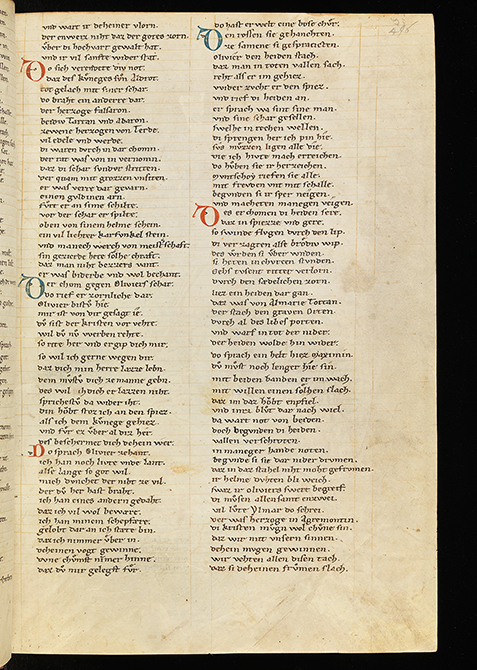 vnd wart ir deheiner vlorn.
der envorht niht daz der gotes zorn.
vber di hochvart gewalt hat.
vnd ir vil sanfte wider stat.
Do sich verendete div not.
daz des kvneges svn Alidrot.
tot gelach mit siner schar.
do braht ein anderer dar.
der herzoge falsaron.
beidiv Tarran vnd abaron.
zewene herzogen von Terde.
vil edele vnd werde.
di waren dvrch in dar chomn.
der rit was von in vernomn.
daz di schar svnder striten.
der quam mit grozzen vnsiten.
er was verre dar gewarn.
einen gvldinen arn.
fvrt er an sime schilte.
vor der schar er spilte.
oben von sinem helme schein.
ein vil liehter karfvnkel stein.
vnd manech werch von meisterschaft.
sin gezierde hete solhe chraft.
daz man niht bezzers vant.
er was biderbe vnd wol bechant.
Der chom gegen Oliviers schar.
do rief er zornliche dar.
Olivier bistv hie.
mir ist von dir gesagt ie.
dv sist der kristen vor vehte.
wil dv nv werben rehte.
so rite her vnd ergip dich mir.
so wil ich gerne wegen dir.
daz dich min herre lazze lebn.
dem mvstv dich ze manne gebn.
des wil ich dich er lazzen niht.
sprichestv da wider iht.
din hobt stoz ich an den spiez.
als ich dem kvnege gehiez.
vnd fvr ez vber al diz her.
des beschermet dich dehein wer.
Do sprach Olivier zehant.
ich han noch livte vnde lant.
alse lange so got wil.
mich dvnchet der nibt ze vil.
der dv her hast braht.
ich han eines andern gedaht.
daz ich vil wol beware.
ich han minem schepfare.
gelobt dar an ich state bin.
daz ich nimmer vber in.
deheinen vogt gewinne.
vvne chvmst nimer hinne.
daz dv mir gelegst fvr.
do hast er welt eine bose chvr.
Den rossen sie gehancten.
ze samene si gesprancten.
Olivier den heiden stach.
daz man in toten vallen sach.
reht als er im gehiez.
vnder zvcht er den spiez.
vnd rief di heiden an.
er sprach wa sint sine man.
vnd sine schar gesellen.
swelhe in rechen wellen.
di sprengen her ich pin hie.
svs mvzzen ligen alle die.
die ich hivte mach erreichen.
do hvben sie ir herzeichen.
mvntschoy riefen sie alle.
mit frevden vnt mit schalle.
begvnden si ir sper neigen.
vnd macheten manegen veigen.
Do es er chomen di heiden sere.
daz in spiezze vnd gere.
so swinde flvgen dvrch den lip.
di verzagten alse brodiv wip.
des wrden si vber wnden.
si heten in chvrcen stvnden.
sehs tvsent ritter verlorn.
dvrch den sedelichen zorn.
liez ein heiden dar gan.
daz was von Almarie Torcan.
der stach den graven Diten.
dvrch al des libes porten.
vnd warf in tot der nider.
der heiden wolde hin wider.
do sprach ein helt hiez gwimin.
dv mvst noch lenger hie sin.
mit beiden handen er im wach.
mit willen einen solhen slach.
daz im daz hobt enpfiel.
vnd im daz blvt dar nach wiel.
da wart not von beiden.
doch begvnden di heiden.
vallen verschroten.
in maneger hande noten.
begvnde si sie dar nider drvmen.
daz in daz stahel niht moht gefrvmen.
ir helme dvhten bli weich.
swaz ir oliviers swert begreif.
di mvsen allensamt enzwei.
vil lvte Ylmar do schrei.
der was herzoge in Agremontin.
di kristen mvgn wol chvne sin.
daz wir mit vnsern sinnen.
dehein mvgen gewinnen.
wir vehten allen disen tach.
daz si deheinen frvmen slach.